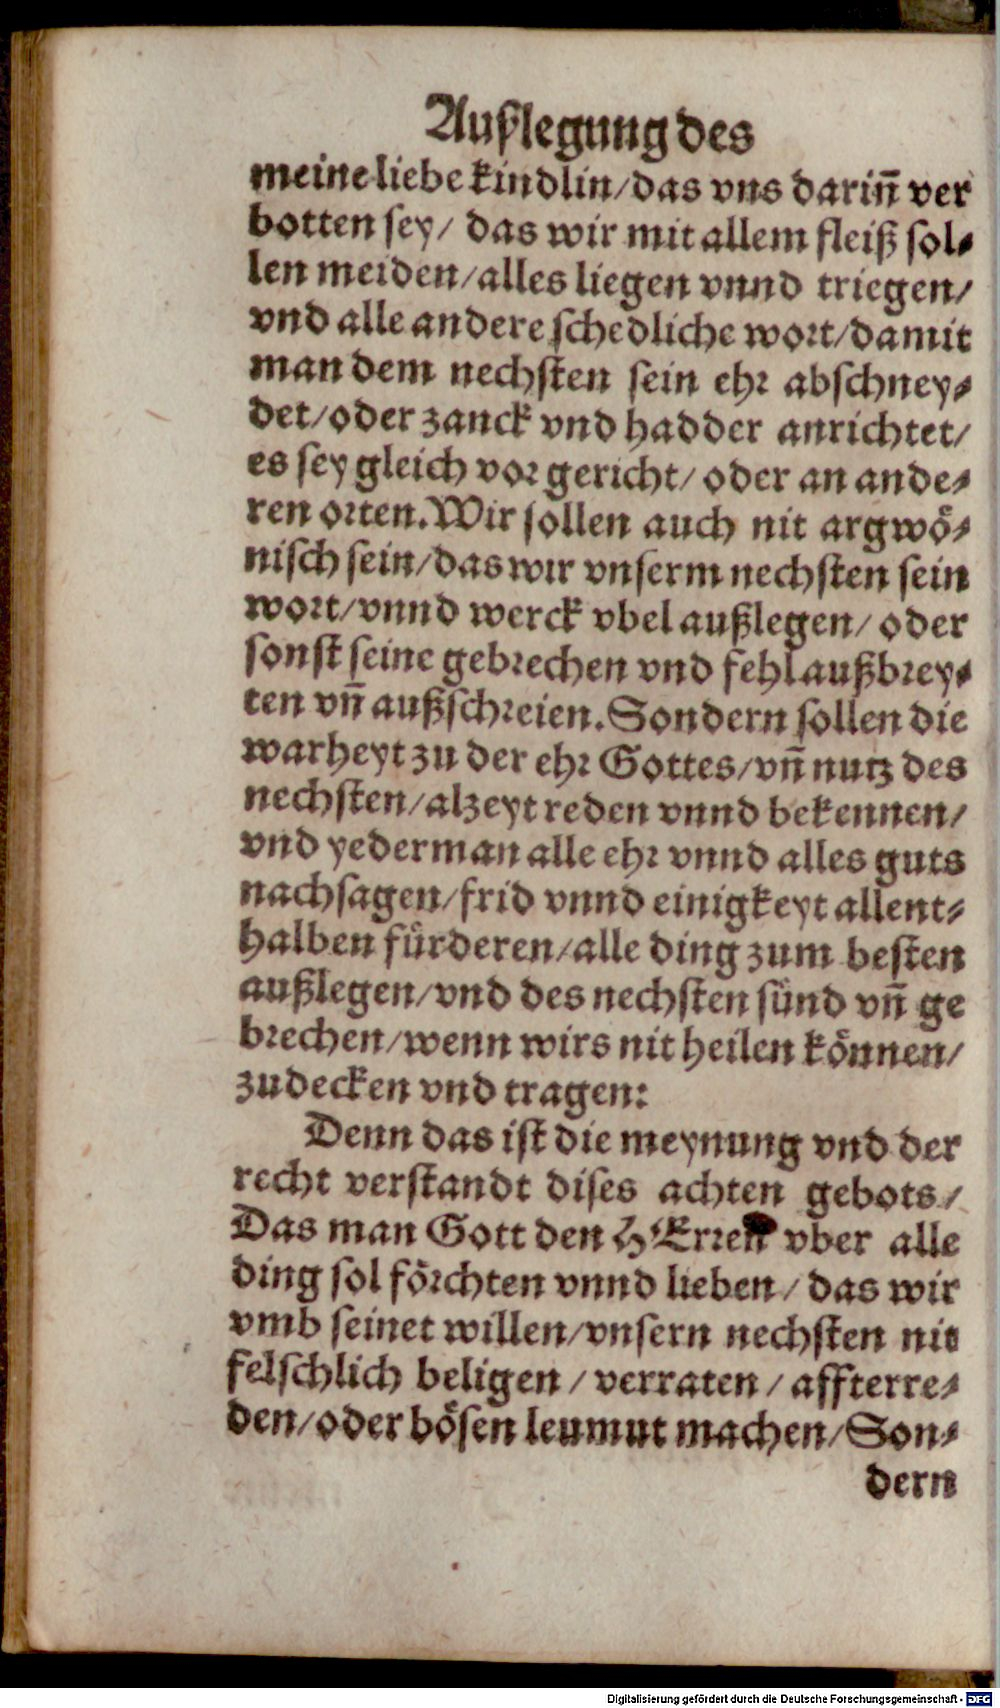 Außlegung des
meine liebe kindlin/das vns darin̄ ver
botten sey/ das wir mit allem fleiß sol⸗
len meiden/alles liegen vnnd triegen/
vnd alle andere schedliche wort/damit
man dem nechsten sein ehr abschney⸗
det/oder zanck vnd hadder anrichtet/
es sey gleich vor gericht/ oder an ande⸗
ren orten. Wir sollen auch nit argwö⸗
nisch sein/das wir vnserm nechsten sein
wort/vnnd werck vbel außlegen/ oder
sonst seine gebrechen vnd fehl außbrey⸗
ten vn̄ außschreien. Sondern sollen die
warheyt zu der ehr Gottes/vn̄ nutz des
nechsten/alzeyt reden vnnd bekennen/
vnd yederman alle ehr vnnd alles guts
nachsagen/frid vnnd einigkeyt allent⸗
halben fürderen/alle ding zum besten
außlegen/vnd des nechsten sünd vn̄ ge
brechen/wenn wirs nit heilen können/
zudecken vnd tragen:
Denn das ist die meynung vnd der
recht verstandt dises achten gebots/
Das man Gott den HErren vber alle
ding sol förchten vnnd lieben/ das wir
vmb seinet willen/vnsern nechsten nit
felschlich beligen/ verraten/ affterre⸗
den/oder bösen leumut machen/Son⸗
dern
Digitalisierung gefördert durch die Deutsche Forschungsgemeinschaft - DFG